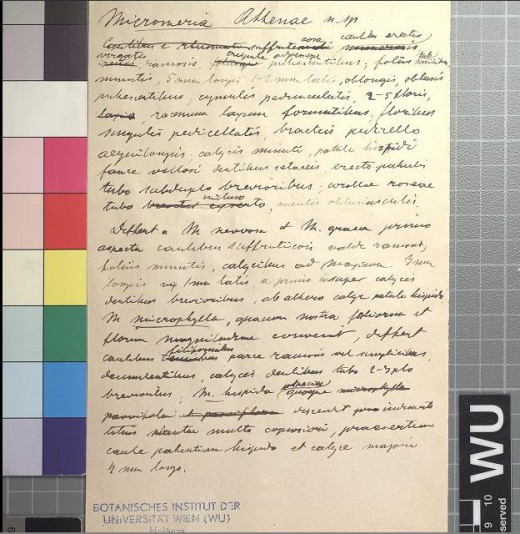 Micromeria Athenae n. sp
caulibus erectis,
virgatis ramosis, pubescentibus, foliis
minutis, 5 mm longis, 1-2 mm latis, oblongis, obtusis
pubescentibus; cymulis pedunculatis, 2-5 floris,
racemum laxum formantibus, floribus
singulis pedicellatis, bracteis pedicello
aequilongis, calycis minuti, patule hispidi
fauce villosi dentibus setaceis, erecto patulis
tubo subduplo brevioribus, corollae roseae
tubo
Differt a M nervosa et M. graeca primo
aspectu caulibus suffruticosis valde ramosis,
foliis minutis, calycibus ad maximum 3 mm
longis vix 1 mm latis, a priori insuper calycis
dentibus brevioribus, ab altera calyce patule hispido.
M microphylla, quacum nostra foliorum et
florum magnitudine convenit, differt
caulibus filiformibus parce ramosis vel simplicibus,
decumbentibus, calycis dentibus tubo 2-3plo
brevioribus; M. hispida
indumento
totius plantae multo copiosiori, praesertim
caule patentim hispido et calyce majori
4 mm longo.
BOTANISCHES INSTITUT DER
UNIVERSITÄT WIEN (WU)
WU
9 10
served